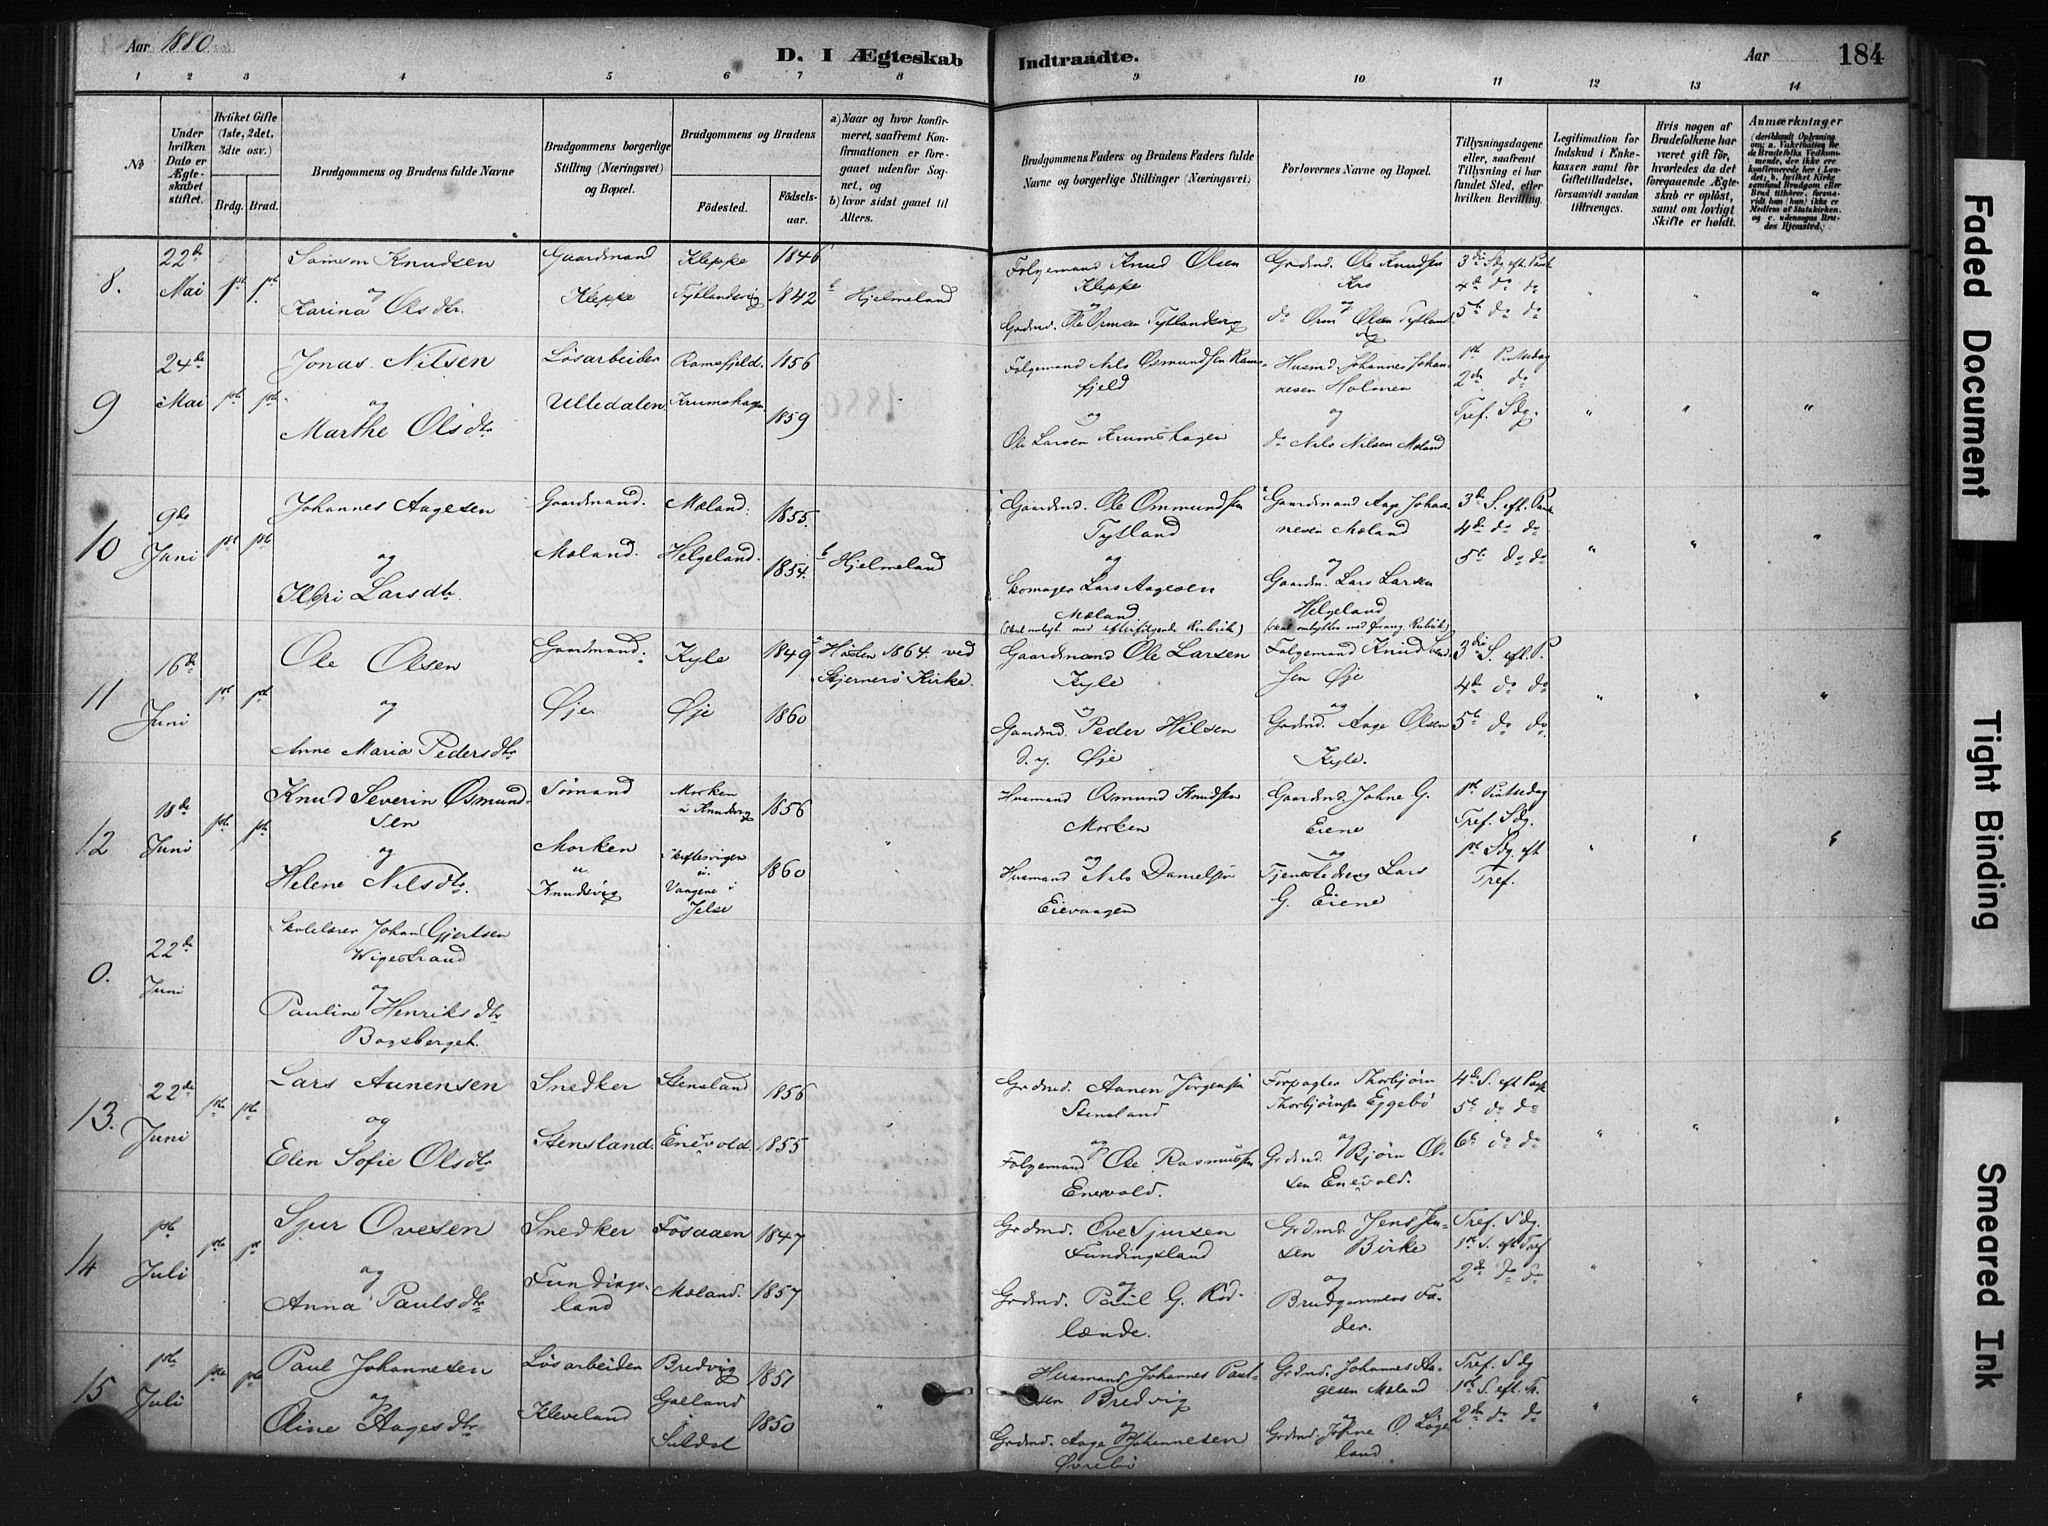 Aar 1880
D. I Ægteskab Indtraadte.
Aar 184
1 2 3 4 5 6 7 8 9 10 11 12 13 14
No
Under hvilken Dato er Ægteskabet stiftet.
Hvilket Gifte (1ste, 2det, 3die osv.)
Brdg. Brud.
Brudgommens og Brudens fulde Navne
Brudgommens borgerlige Stilling (Næringsvei) og Bopæl.
Brudgommens og Brudens
Fødested.
Fødselsaar.
a) Naar og hvor konfirmeret, saafremt Konfirmationen er foregaaet udenfor Sognet, og
b) hvor sidst gaaet til Alters.
Brudgommens Faders og Brudens Faders fulde Navne og borgerlige Stillinger (Næringsvei)
Forlovernes Navne og Bopæl.
Tillysningsdagene eller, saafremt Tillysning ei har fundet Sted, efter hvilken Bevilling.
Legitimation for Indskud i Enkekassen samt for Giftetilladelse, forsaavidt saadan tiltrænges.
Hvis nogen af Brudefolkene har været gift før, hvorledes da det foregaaende Ægteskab er opløst, samt om lovligt Skifte er holdt.
Anmærkninger
8.
22de Mai
Samson Knudsen
og
Karina Olsdtr.
Gaardmand
Kleppe
Kleppe 1846
Tytlandsvig 1842
b Hjelmeland
Folgemand Knud Olsen
Kleppe
og
Grdmd. Ole Ormsen Tytlandsvig
Grdmd. Ole Knudsen
Kro
og
do Orm Olsen Tytland
3die Sdg eft. Paask
4de do do
5te do do
9
24de Mai
Jonas Nilsen
og
Marthe Olsdtr
Løsarbeider
Ulledalen
Ramsfjeld. 1856
Krumshagen 1859
Folgemand Nils Osmundsen Rams-
fjeld
og
Ole Larsen Krumshagen
Husmd. Johannes Johan-
nesen Holmen
og
do Nils Nilsen Mæland
1ste Pintsedag
2den do
Tref. Sdg.
10
9de Juni
Johannes Aagesen
og
Larsdtr.
Gaardmand.
Mæland.
Mæland. 1855.
Helgeland. 1854.
b Hjelmeland
Gaardmd. Ole Osmundsen
Tytland
og
Skomager Lars Aagesen
Mæland
(Skal ombyt. med efterfølgende Rubrik)
Gaardmand Aage Johan-
nesen Mæland
og
Gaardm. Lars Larsen
Helgeland
(skal ombyttes med foreg. Rubrik)
3die S. eft. Paask
4de do do
5te do do
11
16de Juni
Ole Olsen
og
Anne Maria Pedersdtr
Gaardmand.
Øje
Kyle 1849
Øje 1860
a Høsten 1864. ved
Stjernerø Kirke.
Gaardmand Ole Larsen
Kyle
og
Gaardmd. Peder Hilsen
d. y. Øje
Folgemand Knud
sen Øje
og
Grdmd. Aage Olsen
Kyle.
3die S. eft. P.
4de do do
5te do do.
12
18de Juni
Knud Severin Osmund-
sen
og
Helene Nilsdtr.
Sømand
Morken
u
Knudsvig
Morken
u Knudsvig 1856
Skiftesvigen
u.
Vaagene i
Jelse 1860
Husmand Osmund Knudsen
Morken
og
Husmand Nils Danielsen
Eievaagen
Gaardmd. Johne G.
Eiene
og
Tjenestedreng Lars
G. Eiene
1ste Pintsedag
Tref. Sdg.
1ste Sdg. eft
Tref.
0.
22de Juni
Skolelærer Johan Gjertsen
Wigestrand
og
Pauline Henriksdtr
Bogsberget.
13.
22de Juni
Lars Aanensen
og
Elen Sofie Olsdtr
Snedker
Stensland.
Stensland 1856
Enevold. 1855
Grdmd. Aanen Jørgensen
Stensland
og
Folgemand Ole Rasmussen
Enevold.
Forpagter Thorbjørn
Thorbjørnsen Eggebø
og
Grdmd. Bjørn Ol-
sen Enevold.
4de S. eft Paask
5te do do
6te do do
14
1ste Juli
Sjur Ovesen
og
Anna Paulsdtr
Snedker
Fundings-
land
Fosaaen 1847
Mæland. 1857
Grdmd. Ove Sjursen
Fundingsland
og
Grdmd. Paul G. Rød-
lænde.
Grdmd. Jens Jen-
sen Birke
og
Brudgommens Fa-
der.
Tref. Sdg.
1ste S. eft Tref
2den do do
15
1ste Juli
Paul Johannesen
og
Oline Aagesdtr
Løsarbeider
Kleveland
Bredvig 1851
Gaeland
i Suldal 1850
Husmand Johannes Paul-
sen Bredvig
og
Grdmd. Aage Johannesen
Øvrebø
Grdmd. Johannes Aa-
gesen Mæland
og
Grdmd. Johne O. Løge-
land
Tref. Sdg
1ste S. eft. Tr.
2den do do
Faded Document
Tight Binding
Smeared Ink